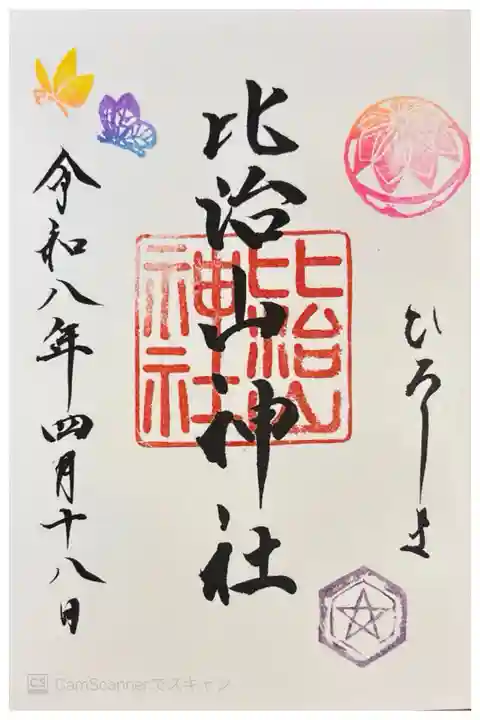 ひろしま
比治山神社
比治山
神社
令和八年四月十八日
CS CamScannerでスキャン